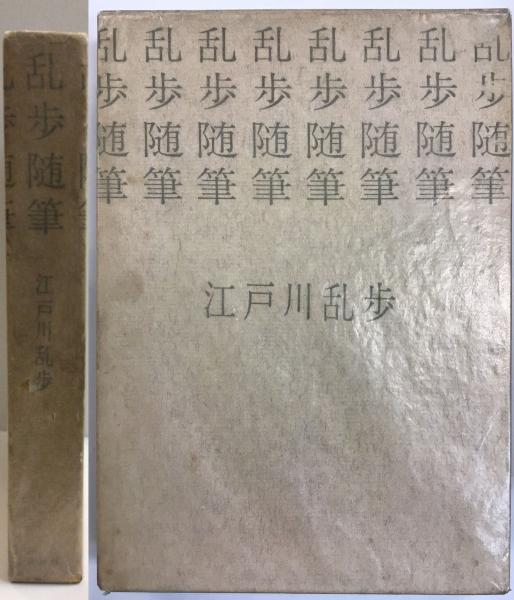 乱歩随筆
江戸川乱歩
乱歩随筆 乱歩随筆 乱歩随筆 乱歩随筆 乱歩随筆 乱歩随筆 乱歩随筆 乱歩随筆
江戸川乱歩